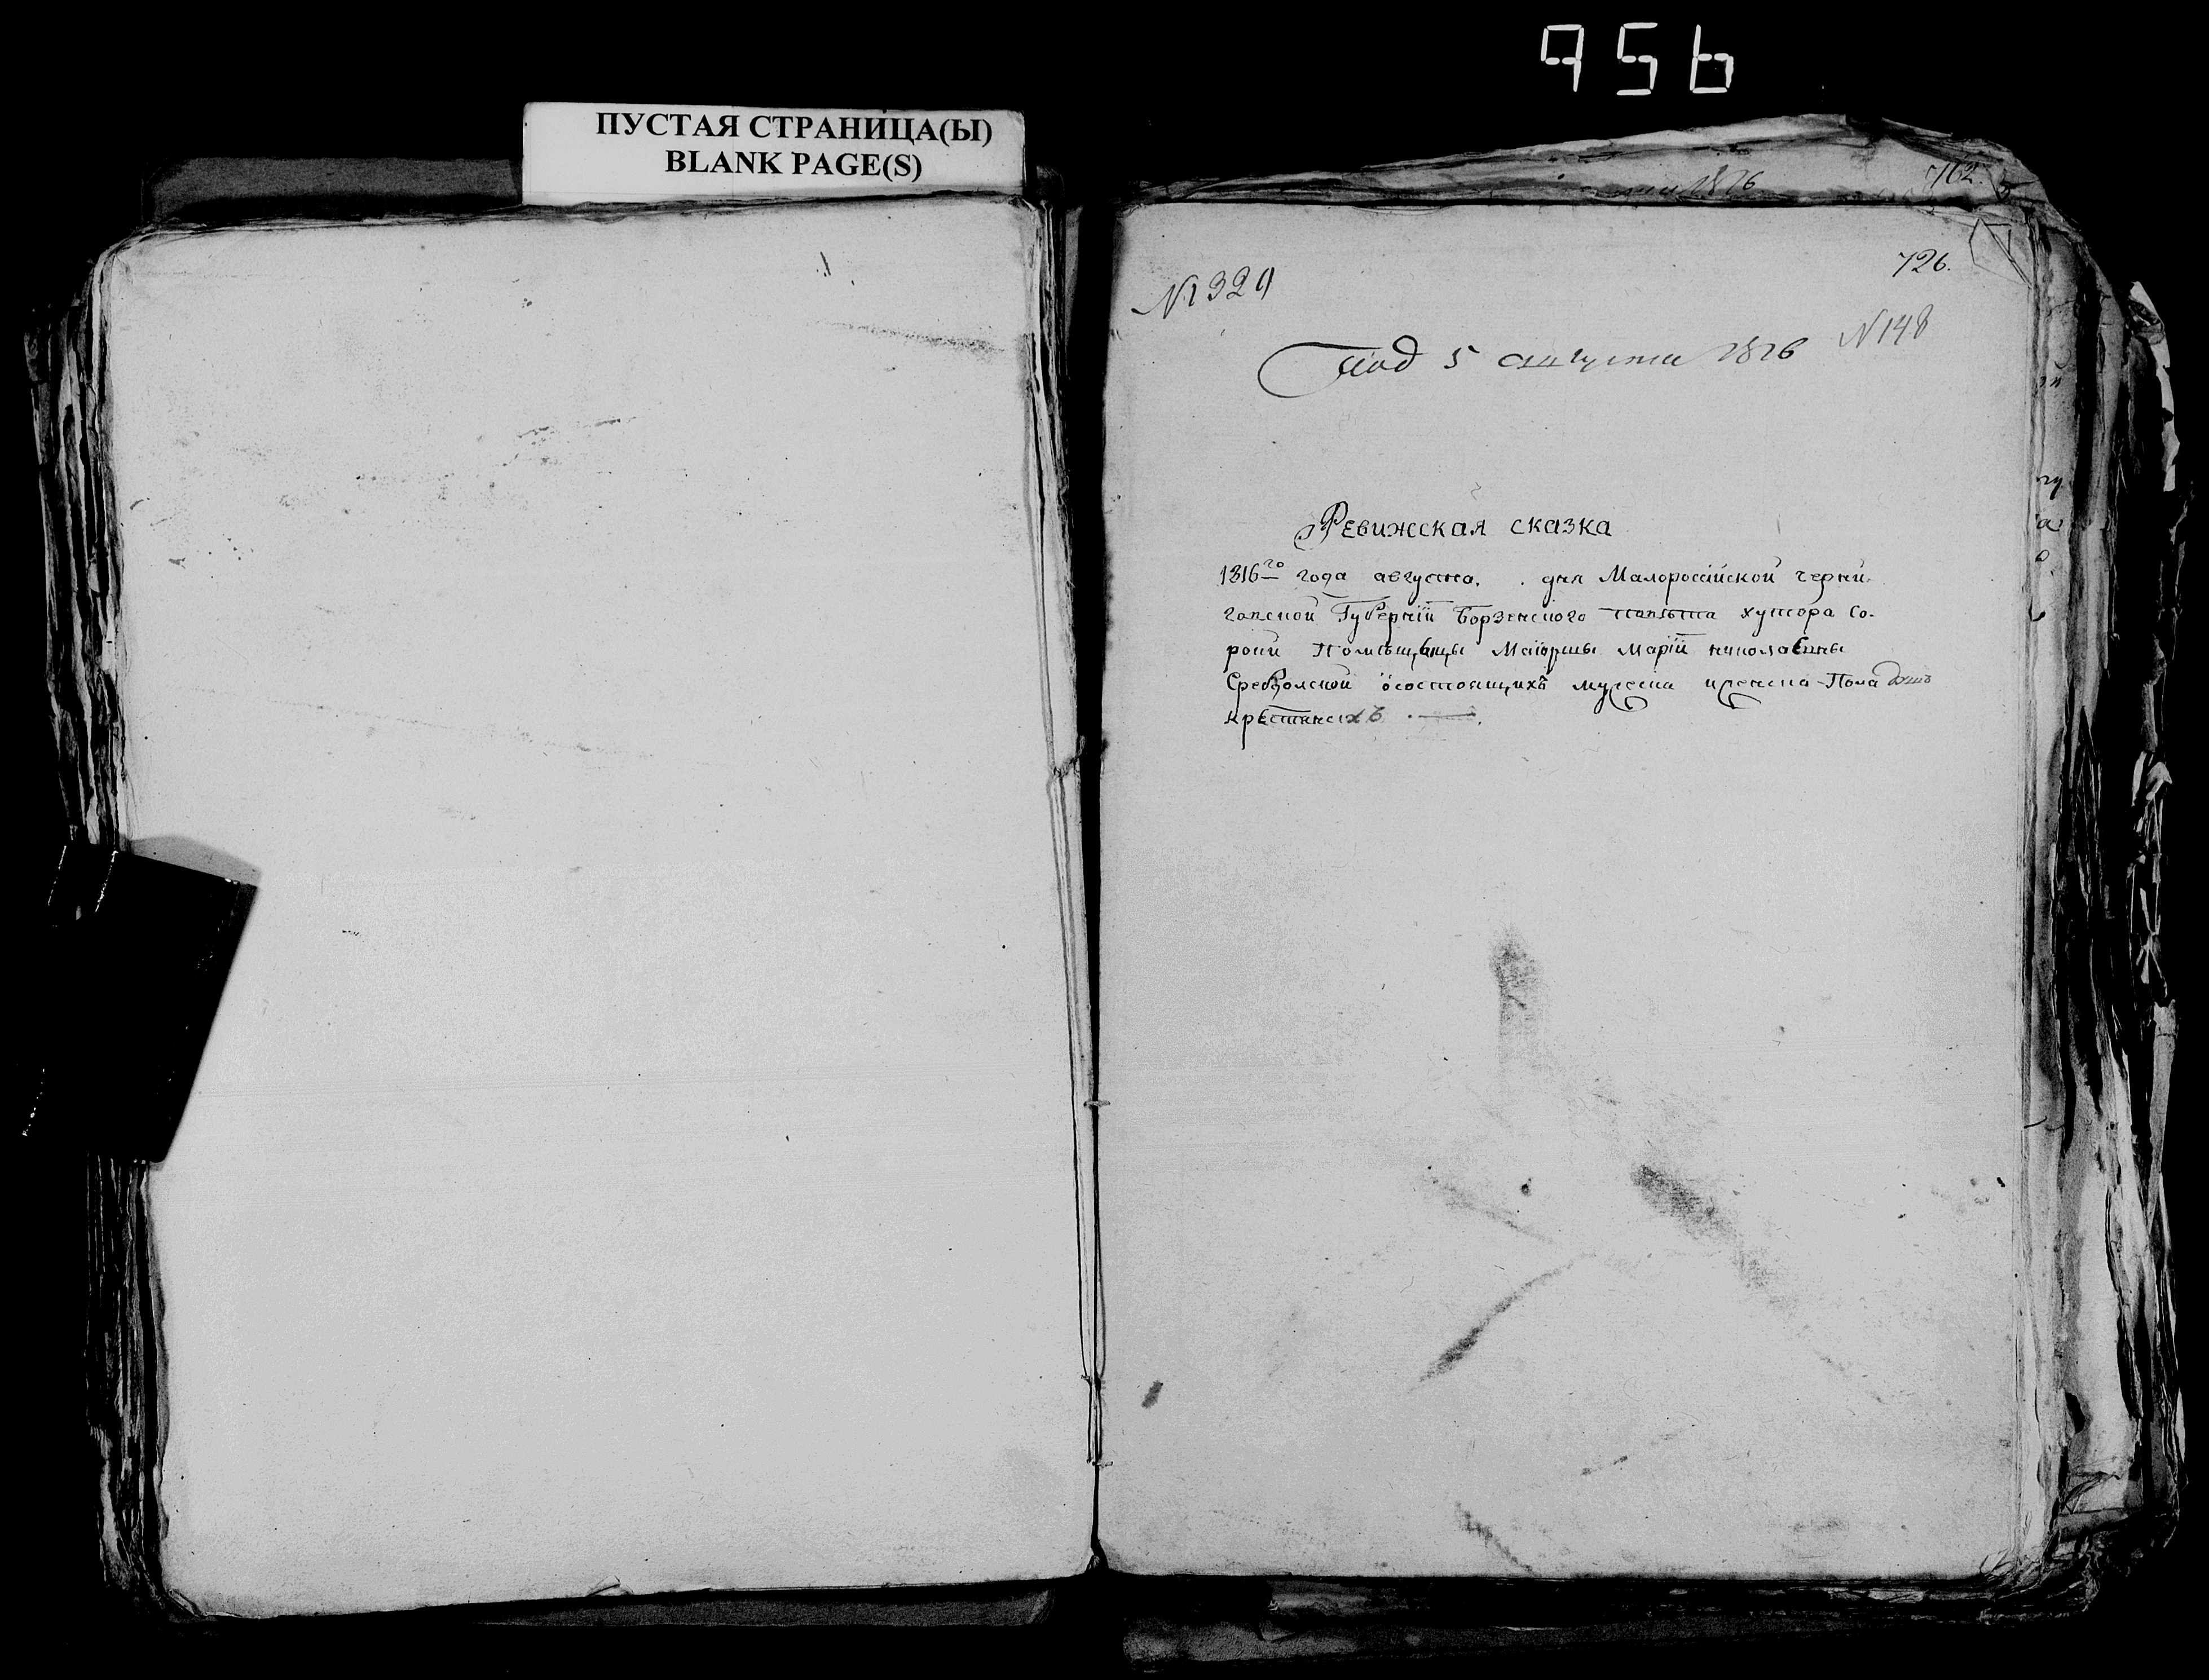 956
ПУСТАЯ СТРАНИЦА(Ы)
BLANK PAGE(S)
1816
762.
726.
№ 329
№ 148
Под 5 августа 1816
Ревижская сказка
1816го года августа. дня Малоросійской черни-
говской Губерніи Борзенского повѣта хутора Со-
роки Помѣщицы Маіорши Маріи николаевны
осостоящихъ мужеска иженска Пола душъ
крестянехъ